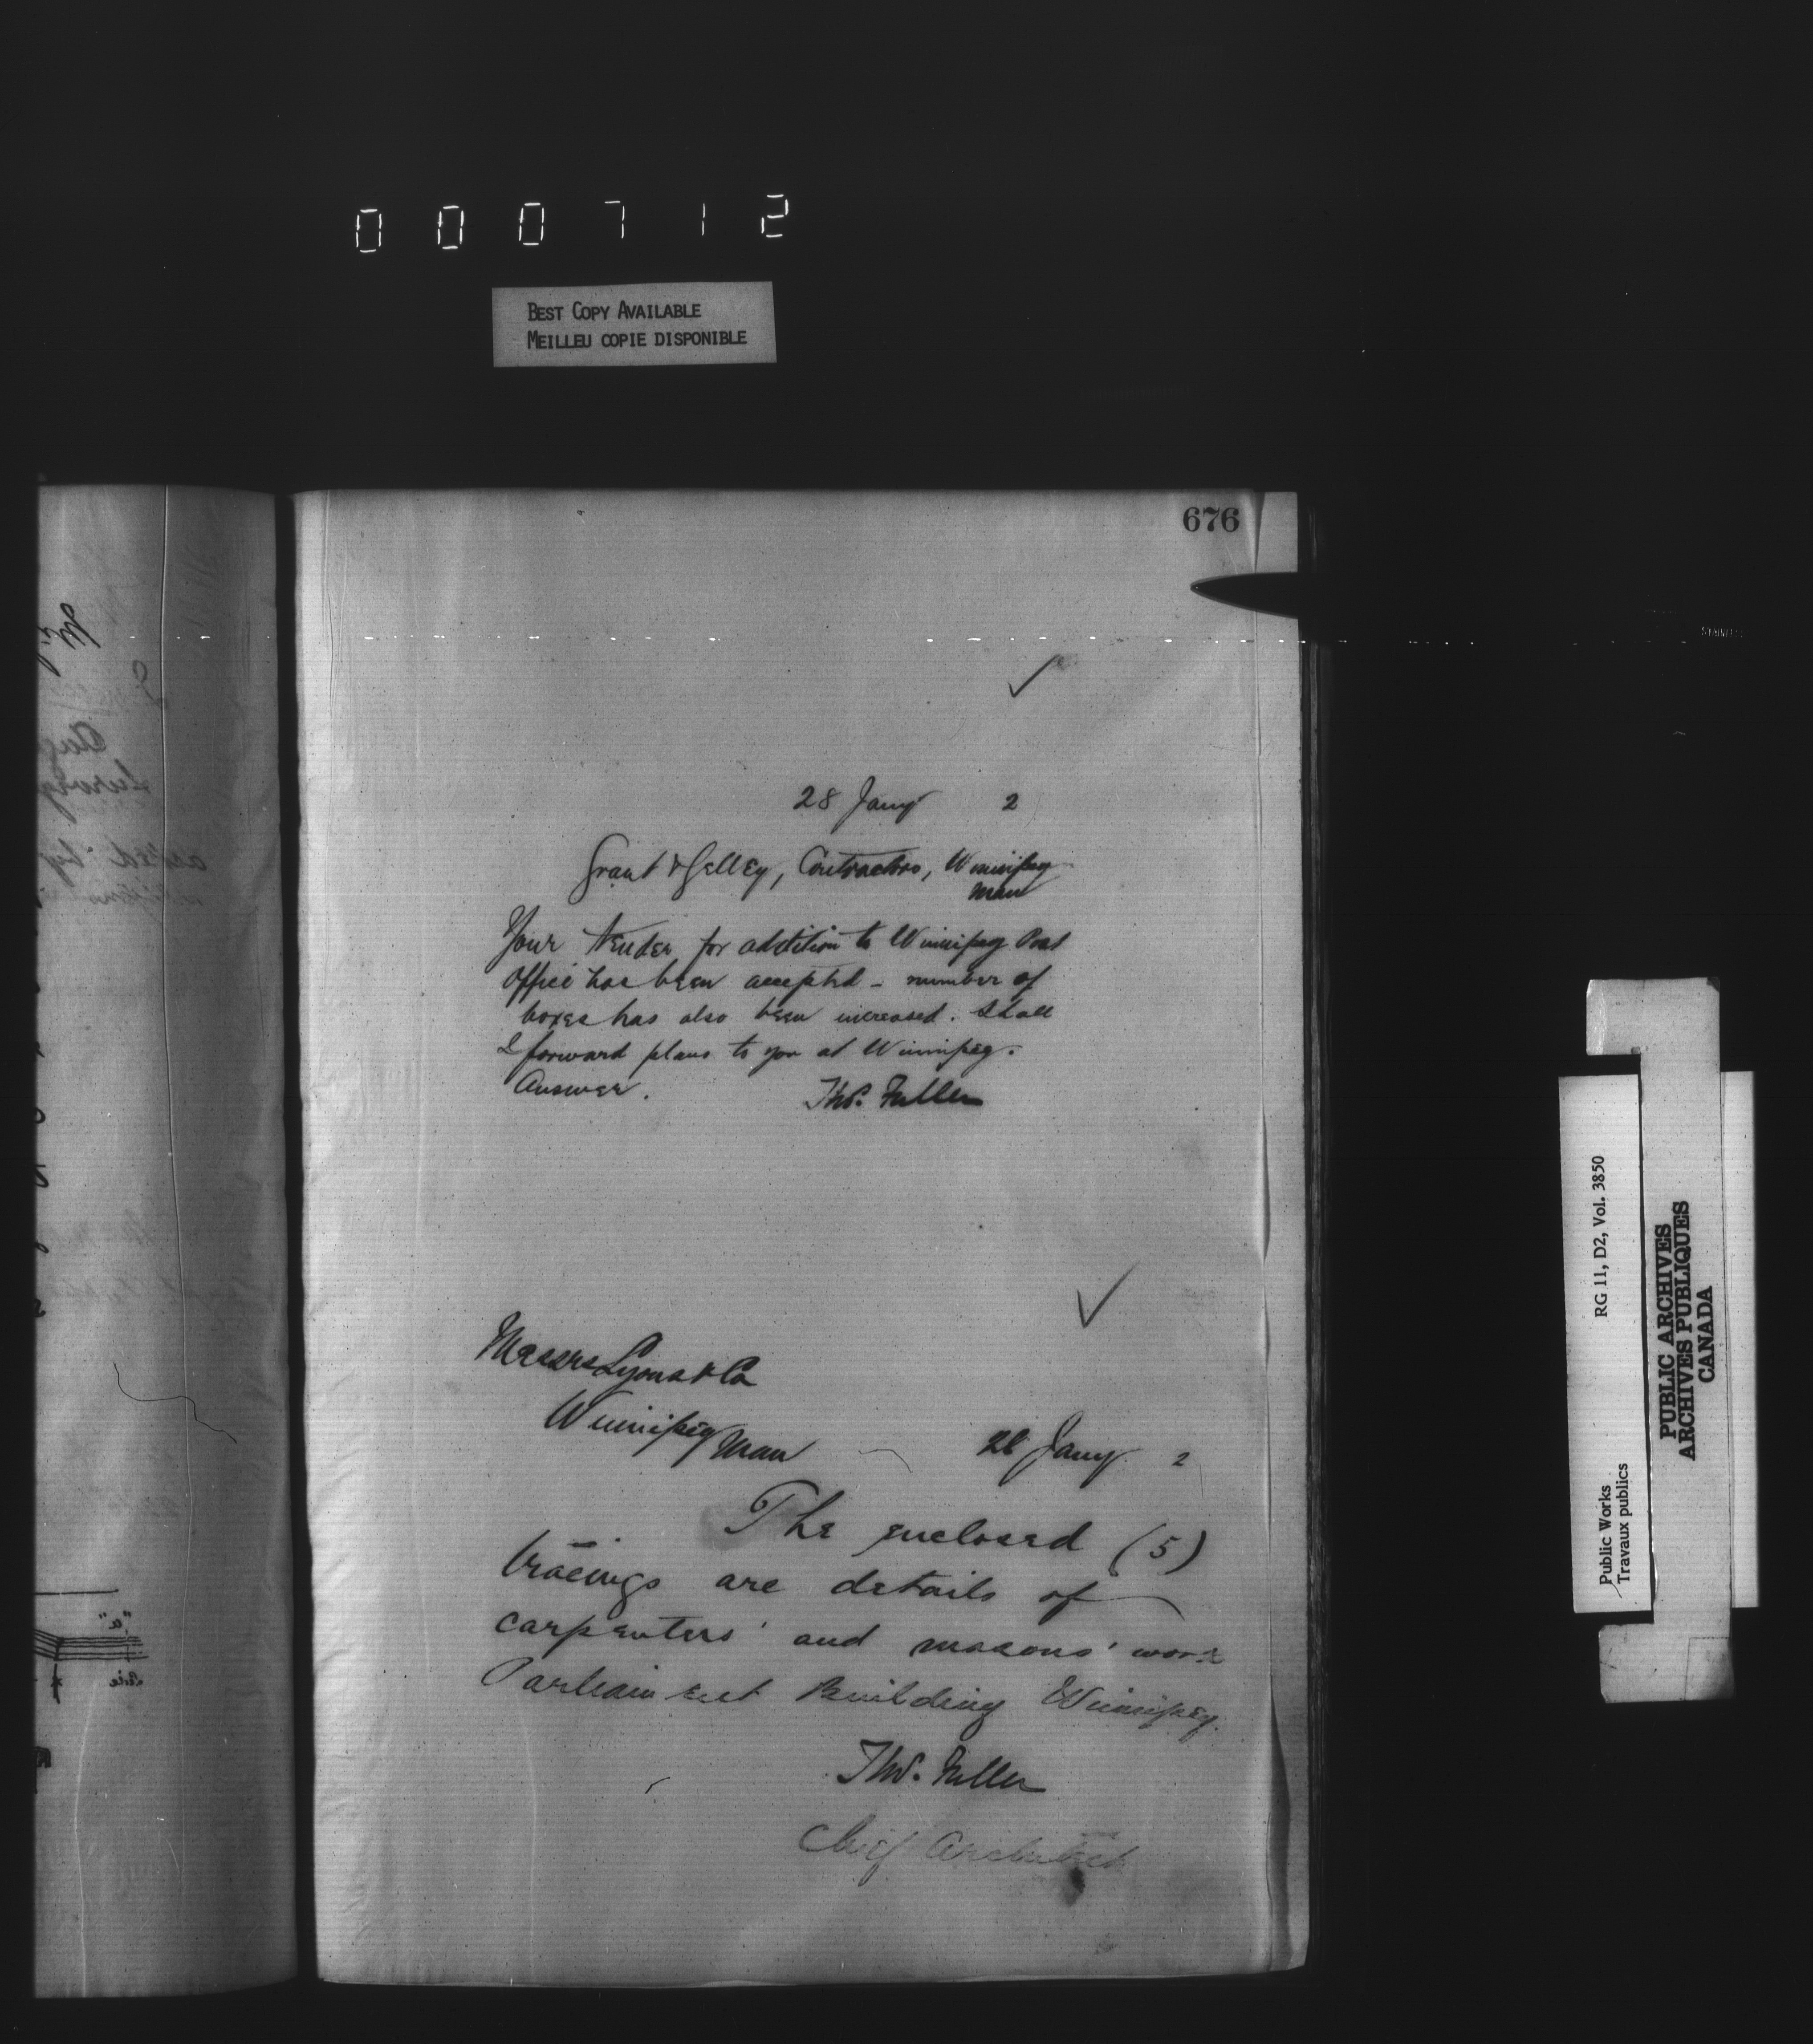 000712
BEST COPY AVAILABLE
MEILLEU COPIE DISPONIBLE
676
28 Jany 2
Grant & Gelley, Contractors, Winnipeg
Man
Your tender for addition to Winnipeg Post
Office has been accepted - number of
boxes has also been increased. Shall
I forward plans to you at Winnipeg.
Answer. Thos. Fuller
Messrs Lyons & Co
Winnipeg
Man
28 Jany. 2
The enclosed (5)
tracings are details of
carpenters' and masons' work
Parliament Building Winnipeg.
Thos. Fuller
Chief Architect
RG 11, D2, Vol. 3850
Public Works
Travaux publics
PUBLIC ARCHIVES
ARCHIVES PUBLIQUES
CANADA